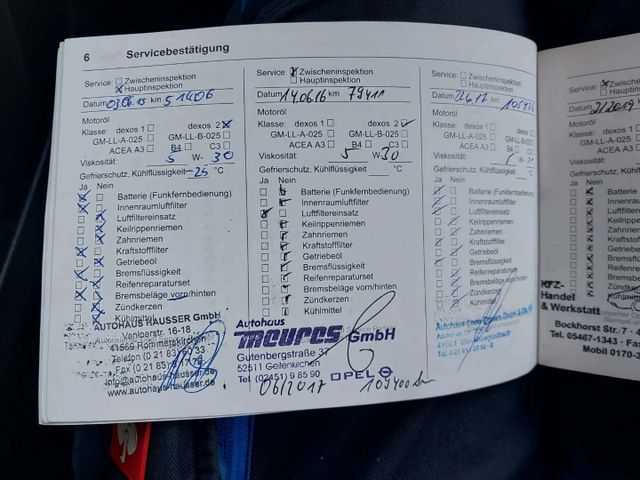 6 Servicebestätigung
Service: Zwischeninspektion
Hauptinspektion
Datum 03.06.15 km 51406
Motoröl
Klasse: dexos 1 dexos 2
GM-LL-A-025 GM-LL-B-025
ACEA A3 B4 C3
Viskosität: 5 W- 30
Gefrierschutz, Kühlflüssigkeit -25 °C
Ja Nein
Batterie (Funkfernbedienung)
Innenraumluftfilter
Luftfiltereinsatz
Keilrippenriemen
Zahnriemen
Kraftstofffilter
Getriebeöl
Bremsflüssigkeit
Reifenreparaturset
Bremsbeläge vorn/hinten
Zündkerzen
Kühlmittel
AUTOHAUS HAUSSER GmbH
Venloerstr. 16-18
41569 Rommerskirchen
Telefon (0 21 83)
Fax (0 21 83)
info@autohaus-hausser.de
www.autohaus-hausser.de
Service: Zwischeninspektion
Hauptinspektion
Datum 14.06.16 km 79411
Motoröl
Klasse: dexos 1 dexos 2
GM-LL-A-025 GM-LL-B-025
ACEA A3 B4 C3
Viskosität: 5 W- 30
Gefrierschutz, Kühlflüssigkeit °C
Ja Nein
Batterie (Funkfernbedienung)
Innenraumluftfilter
Luftfiltereinsatz
Keilrippenriemen
Zahnriemen
Kraftstofffilter
Getriebeöl
Bremsflüssigkeit
Reifenreparaturset
Bremsbeläge vorn/hinten
Zündkerzen
Kühlmittel
Autohaus
meures GmbH
Gutenbergstraße 37
52511 Geilenkirchen
Tel. (02451) 9 85 90 OPEL
06/2017 109400 km
Service: Zwischeninspektion
Hauptinspektion
Datum km
Motoröl
Klasse: dexos 1 dexos 2
GM-LL-A-025 GM-LL-B-025
ACEA A3 B4 C3
Viskosität: W-
Gefrierschutz, Kühlflüssigkeit °C
Ja Nein
Batterie (Funkfernbedienung)
Innenraumluftfilter
Luftfiltereinsatz
Keilrippenriemen
Zahnriemen
Kraftstofffilter
Getriebeöl
Bremsflüssigkeit
Reifenreparaturset
Bremsbeläge vorn/hinten
Zündkerzen
Kühlmittel
Autohaus
Service: Zwischen
Hauptins
Datum
Motoröl
Klasse:
Viskosität:
Gefrierschutz, Kühl
Ja Nein
KFZ-
Handel
& Werkstatt
Bockhorst Str. 7
Tel. 05467-1343 - Fax
Mobil 0170-